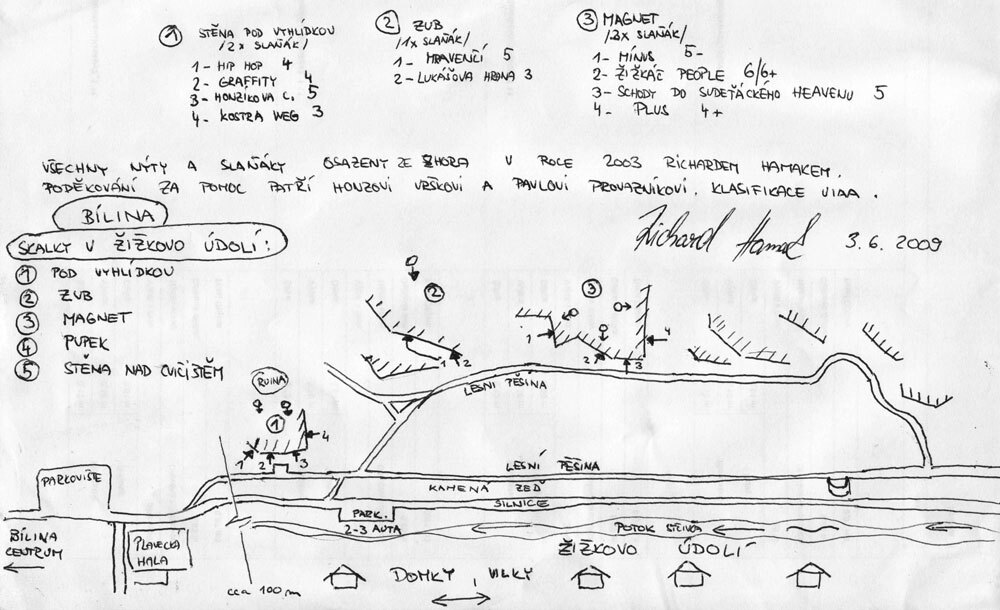 1 STĚNA POD VYHLÍDKOU
/2x SLAŇÁK/
1- HIP HOP 4
2- GRAFFITY 4
3- HONZÍKOVA C. 5
4- KOSTRA WEG 3
2 ZUB
/1x SLAŇÁK/
1- MRAVENČÍ 5
2- LUKÁŠOVA HRANA 3
3 MAGNET
/3x SLAŇÁK/
1- MÍNUS 5-
2- ŽIŽKÁČ PEOPLE 6/6+
3- SCHODY DO SUDEŤÁCKÉHO HEAVENU 5
4- PLUS 4+
VŠECHNY NÝTY A SLAŇÁKY OSAZENY ZE ZHORA V ROCE 2003 RICHARDEM HAMAKEM.
PODĚKOVÁNÍ ZA POMOC PATŘÍ HONZOVI VRŠKOVI A PAVLOVI PROVAZNÍKOVI. KLASIFIKACE UIAA.
BÍLINA
SKALKY V ŽIŽKOVO ÚDOLÍ:
Richard Hamak 3.6.2009
1 POD VYHLÍDKOU
2 ZUB
3 MAGNET
4 PUPEK
5 STĚNA NAD CVIČIŠTĚM
2
3
1
2
1
2
3
4
RUINA
1
4
1
2
3
LESNÍ PĚŠINA
LESNÍ PĚŠINA
PARKOVIŠTĚ
KAMENÁ ZEĎ
SILNICE
PARK.
2-3 AUTA
POTOK
BÍLINA
CENTRUM
PLAVECKÁ
HALA
ŽIŽKOVO ÚDOLÍ
DOMKY, VILKY
cca 100 m